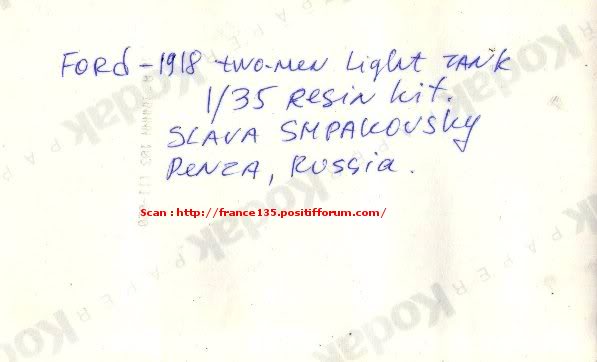 FORd - 1918 two-men Light TANK
1/35 Resin kit.
SLAVA SMPAKOVSky
PENZA, Russia.
Scan : http://france135.positifforum.com/
Kodak
PAPER
Kodak
PAPER
Kodak
PAPER
Kodak